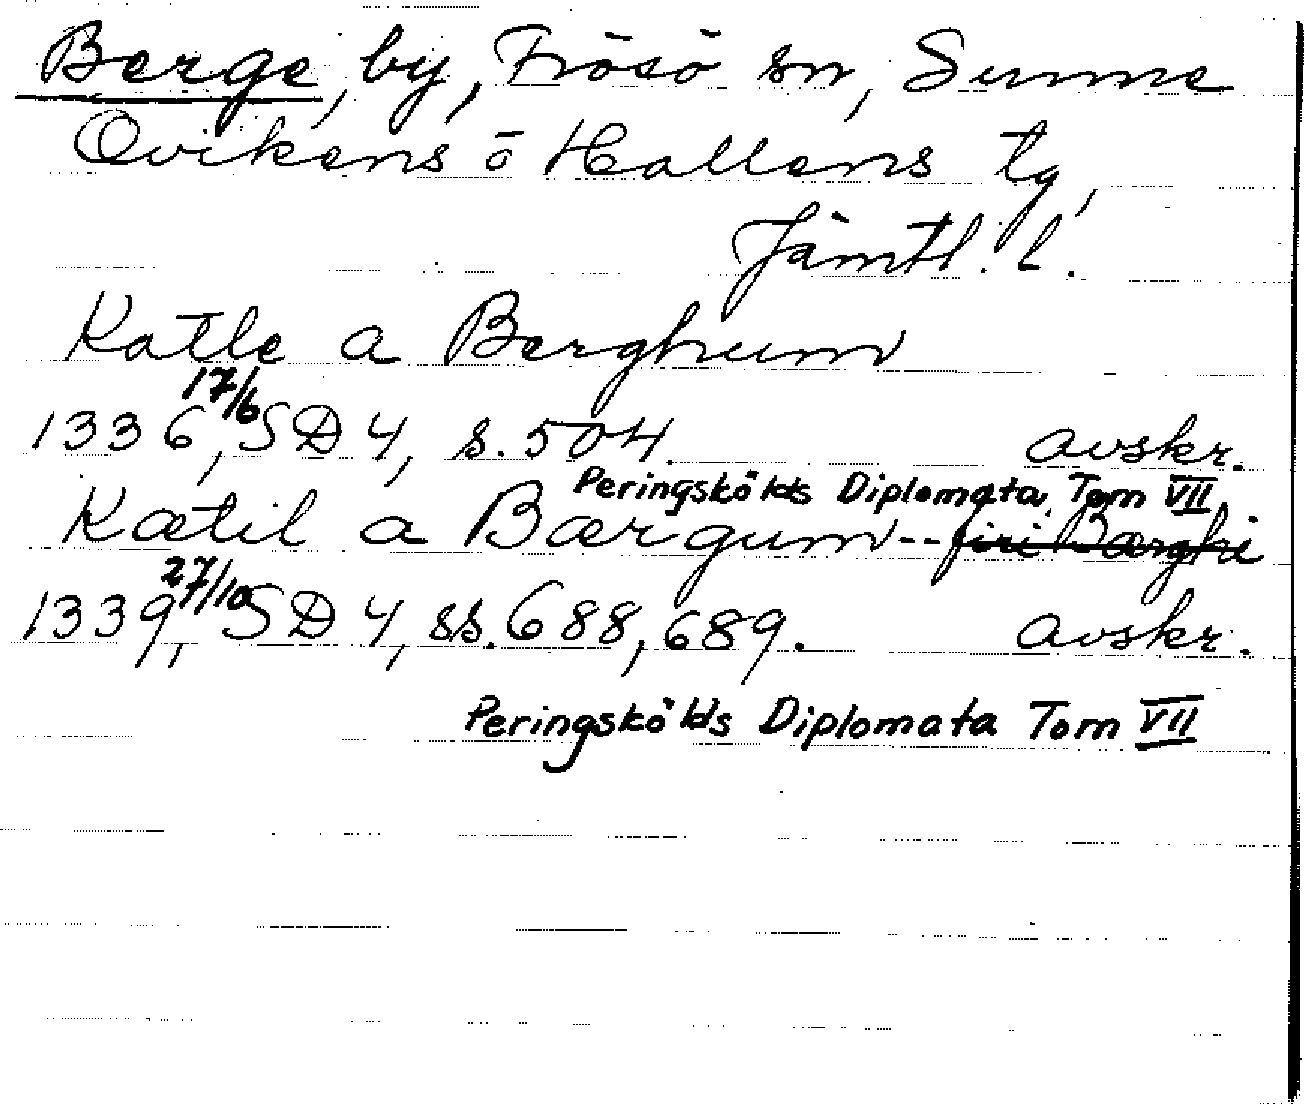 Berge, by, Frösö sn, Sunne
Ovikens o Hallens tg,
Jämtl. l.
Katle a Berghum
17/6
1336, SD 4, s. 504. avskr.
Peringskölds Diplomata Tom VII
Kætil a Bærgum -- firi Bærghi
27/10
1339, SD 4, ss. 688, 689. avskr.
Peringskölds Diplomata Tom VII